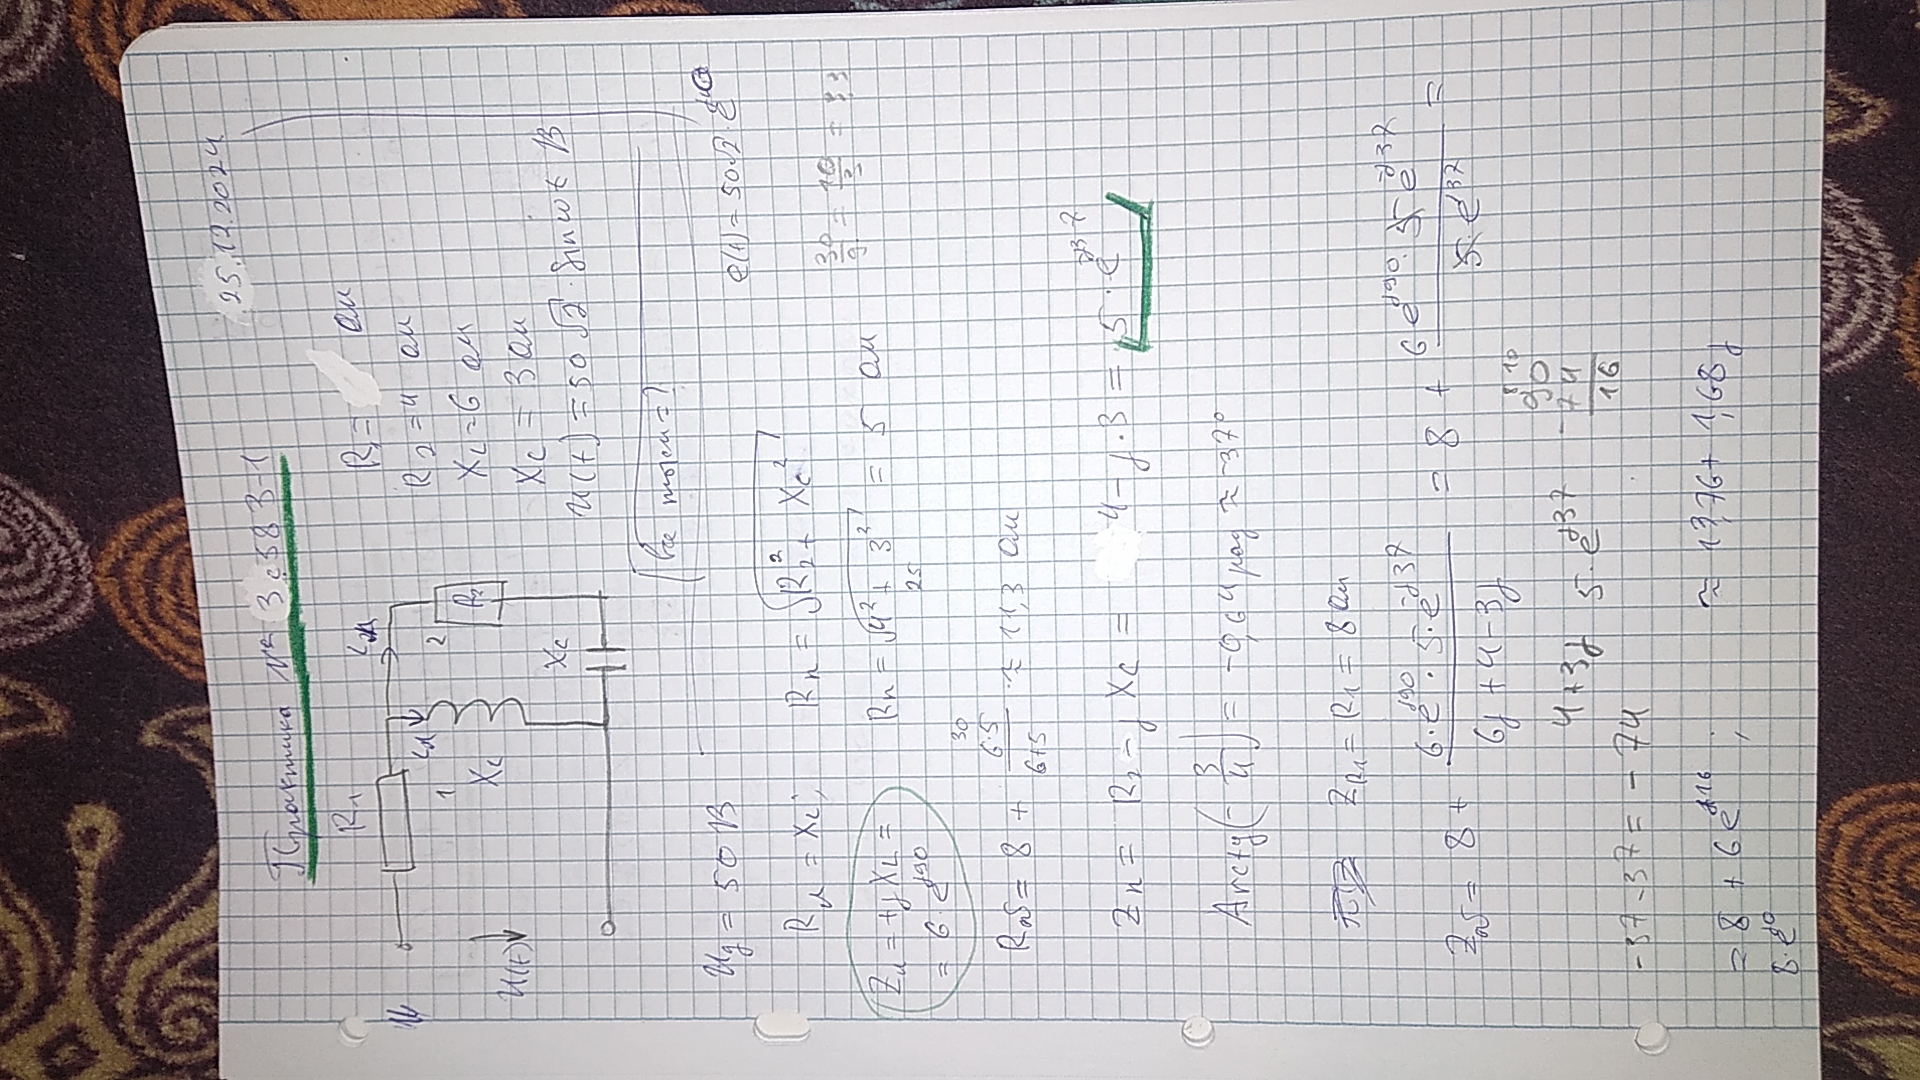 25.12.2024
Практика №
R₁
R₁ = Ом
R₂ = 4 Ом
1
2
R₂
X_L = 6 Ом
u(t)
X_L
X_C
X_C = 3 Ом
u(t) = 50√2 · sin ωt В
Все токи = ?
U_g = 50 В
e(t) = 50√2 ·
R_n = √(R₂² + X_C²)
30/9 = 10/3 = 3,3
+jX_L =
= 6 · e^j90
R_n = √(4² + 3²) = 5 Ом
25
30
R_об = 8 + (6·5)/(6+5) ≈ 11,3 Ом
Z_n = R₂ - jX_C = 4 - j·3 = 5 · e^-j37
Arctg(-3/4) = -0,64 рад ≈ -37°
Z_R1 = R₁ = 8 Ом
Z_об = 8 + (6·e^j90 · 5·e^-j37)/(6j + 4 - 3j) = 8 + (6e^j90 · 5e^-j37)/(5·e^j37) =
4+3j 5·e^j37
8 10
90
- 74
16
-37-37 = -74
= 8 + 6e^j16 ; ≈ 13,76 + 1,68j
8·e^j0